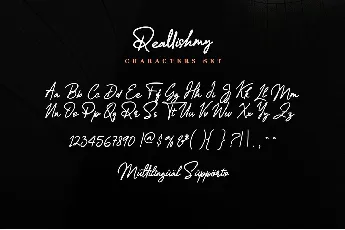 Reallishmy
CHARACTERS SET
Aa Bb Cc Dd Ee Ff Gg Hh Ii Jj Kk Ll Mm
Nn Oo Pp Qq Rr Ss Tt Uu Vv Ww Xx Yy Zz
1234567890 !@$%&*( ){ } ?/|.,
Multilingual Supports